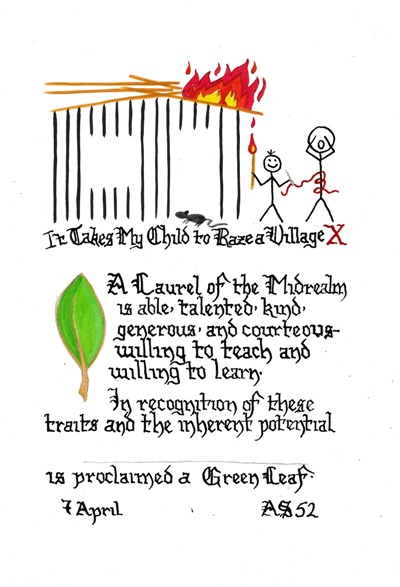 It Takes My Child to Raze a Village X
A Laurel of the Midrealm
is able, talented, kind,
generous, and courteous-
willing to teach and
willing to learn.
In recognition of these
traits and the inherent potential
is proclaimed a Green Leaf.
7 April AS 52